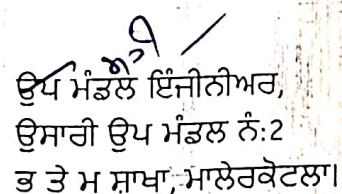 ਉਪ ਮੰਡਲ ਇੰਜੀਨੀਅਰ,
ਉਸਾਰੀ ਉਪ ਮੰਡਲ ਨੰ:2
ਭ ਤੇ ਮ ਸ਼ਾਖਾ, ਮਾਲੇਰਕੋਟਲਾ।